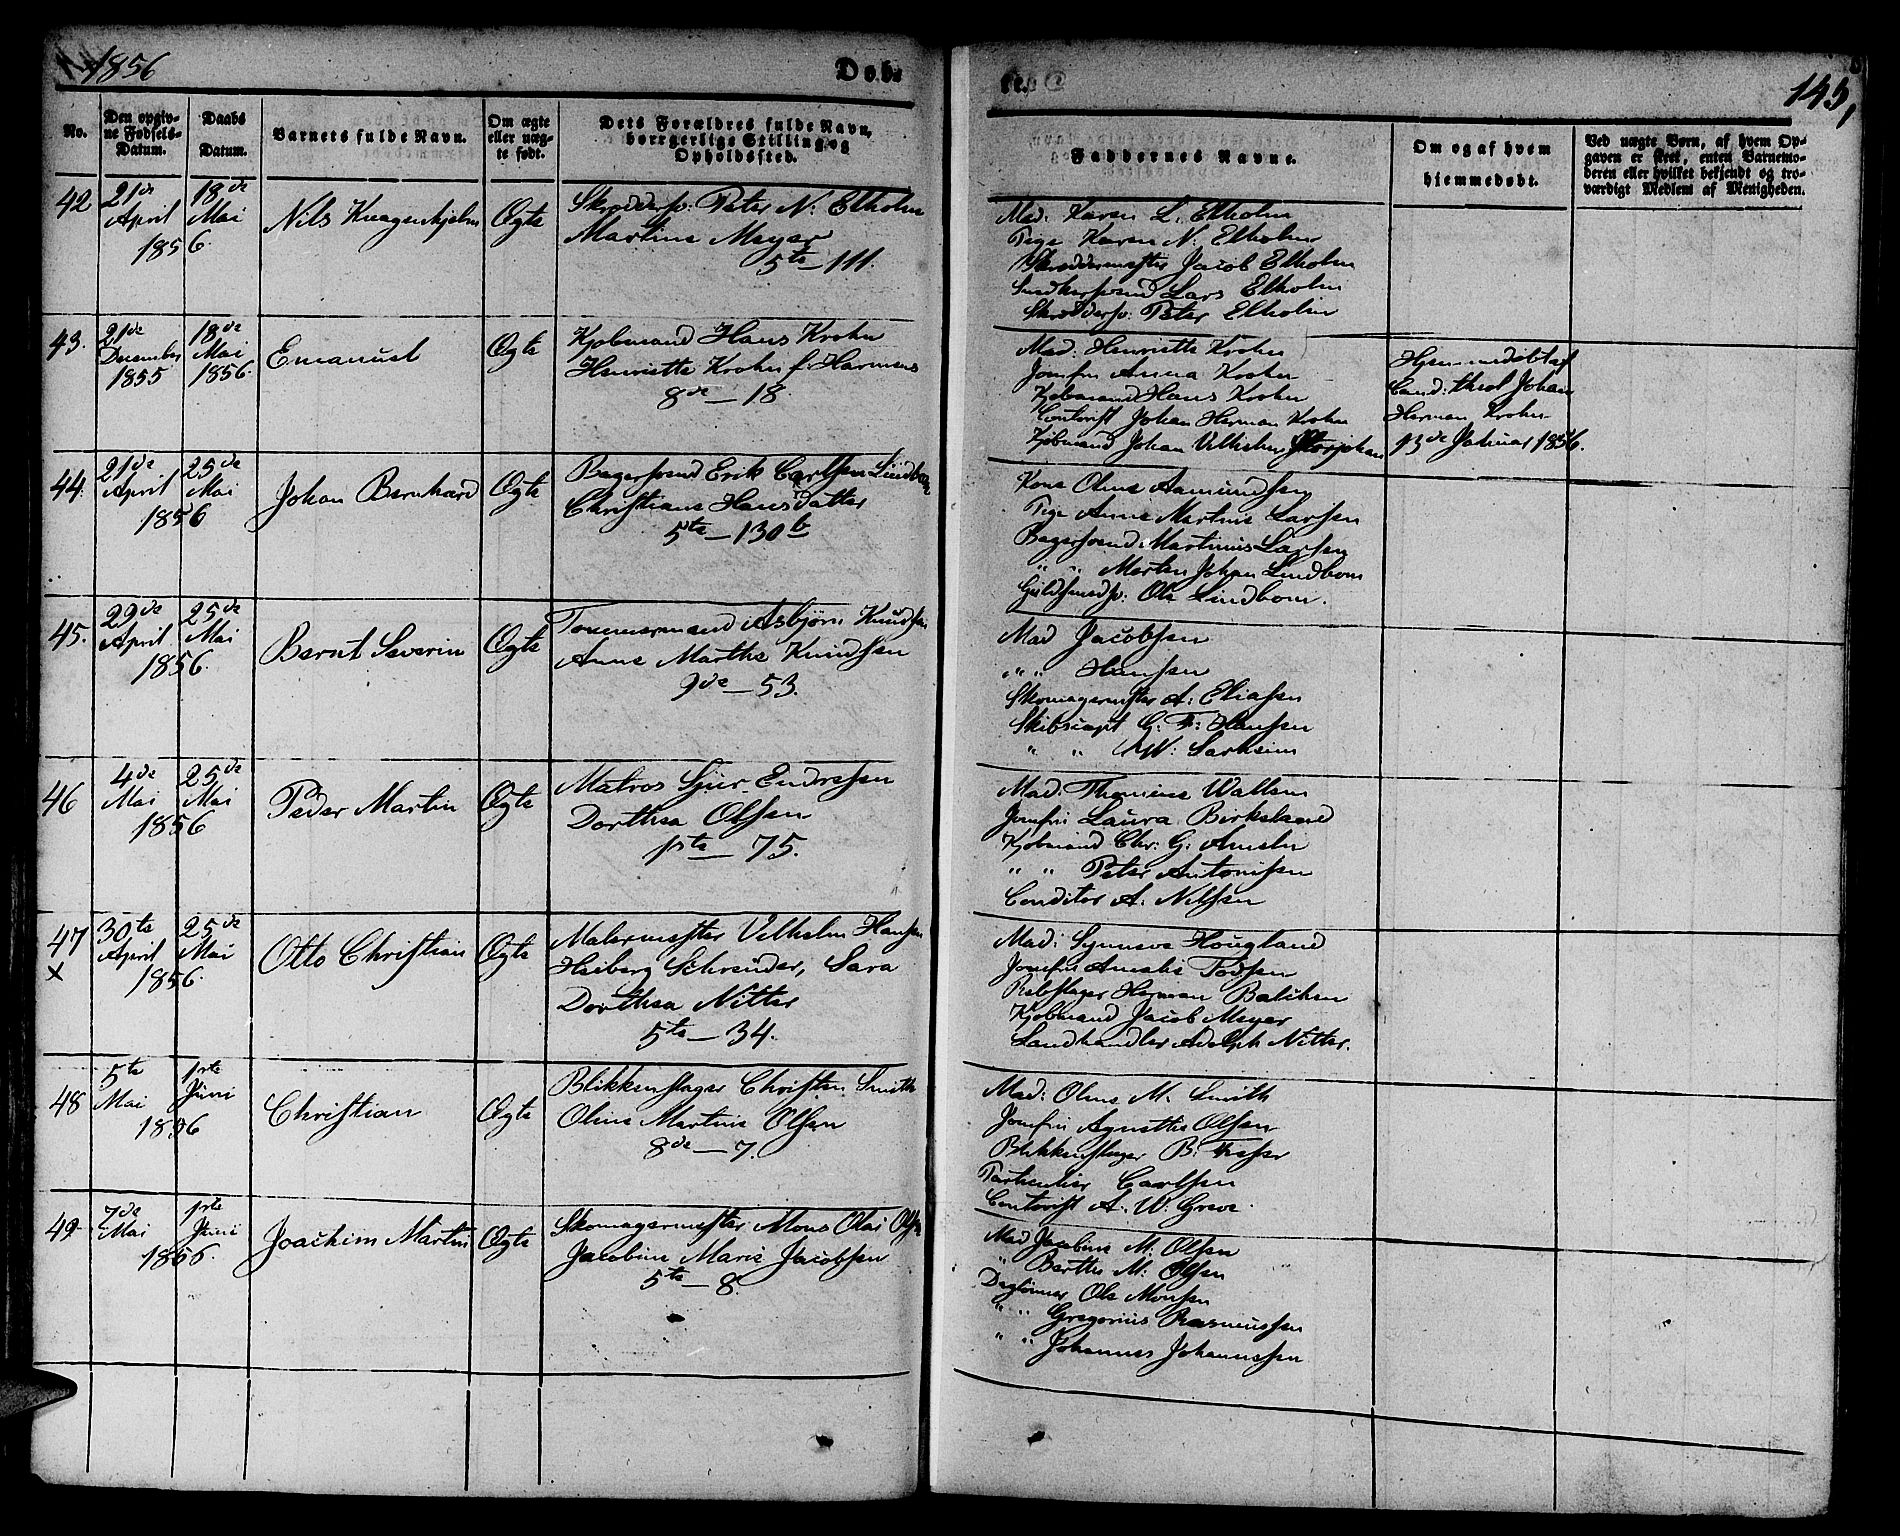 1856
Døbte.
145,
No.
Den opgivne Fødsels-Datum.
Daabs Datum.
Barnets fulde Navn.
Om ægte eller uægte født.
Dets Forældres fulde Navn, borgerlige Stilling og Opholdssted.
Faddernes Navne.
Om og af hvem hjemmedøbt.
Ved uægte Børn, af hvem Opgaven er skeet, enten Barnemoderen eller hvilket bekjendt og troværdigt Medlem af Menigheden.
42
21de April 1856
18de Mai
Nils Knagenhjelm
Ægte
Skrædersv: Peter N: Elholm
Martine Meyer
5te – 111.
Mad: Karen L. Elholm
Pige Karen N: Elholm
Skræddermester Jacob Elholm
Snedkersvend Lars Elholm
Skrædersv: Peter Elholm
43.
21de December 1855
18de Mai 1856
Emanuel
Ægte
Kjøbmand Hans Krohn
Henriette Krohn f. Harmens
8de – 18.
Mad: Henriette Krohn
Jomfru Anna Krohn
Kjøbmand Hans Krohn
Contorist Johan Herman Krohn
Kjøbmand Johan Vilhelm Storjohan
Hjemmedøbt af
Cand: theol Johan
Herman Krohn
13de Januar 1856.
44.
21de April 1856
25de Mai
Johan Bernhard
Ægte
Bagersvend Erik Carlsen Lindbom
Christiane Hansdatter
5te – 130b
Kone Oline Aamundsen
Pige Anne Martine Larsen
Bagersvend Martinus Larsen
" " Morten Johan Lindbom
Guldsmedsv: Ole Lindbom.
45.
29de April 1856
25de Mai
Bernt Severin
Ægte
Tømmermand Asbjørn Knudsen
Anne Marthe Knudsen
9de – 53.
Mad Jacobsen
" " Hansen
Skomagermester A: Eliasen
Skibscapt G. F: Hansen
" "
46
4de Mai 1856
25de Mai
Peder Martin
Ægte
Matros Sjur Endresen
Dorthea Olsen
1ste – 75.
Mad: Thomine Wallem
Jomfru Laura Birkeland
Kjøbmand Chr: G: Ameln
" " Peter Antonisen
Conditor A. Nilsen
47
x
30te April 1856
25de Mai
Otto Christian
Ægte
Malermester Vilhelm Hansen
Heiberg Schreuder, Sara
Dorthea Nitter
5te – 34.
Mad: Synneve Hougland
Jomfru Amalie Todsen
Rebslager Herman Balchen
Kjøbmand Jacob Meyer
Landhandler Adolph Nitter.
48
5te Mai 1856
1ste Juni
Christian
Ægte
Blikkenslager Christen Smith
Oline Martine Olsen
8de – 7.
Mad: Oline M. Smith
Jomfru Agnethe Olsen
Blikkenslager B:
Particulier Carlsen
Contorist A. W. Greve.
49
7de Mai 1856.
1ste Juni
Joachim Martin
Ægte
Skomagermester Mons Olai Olsen
Jacobine Marie Jacobsen
5te – 8.
Mad Jacobine M: Olsen
" Berthe M: Olsen
Daglønner Ole Monsen
" " Gregorius Rasmussen
" " Johannes Johannesen